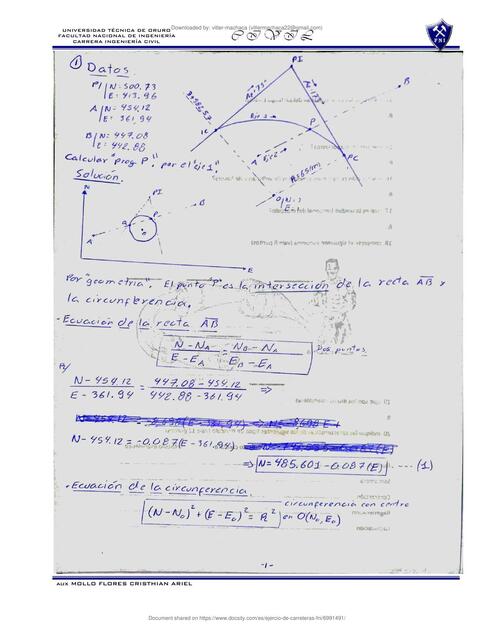 Downloaded by: vitier-machaca (vitiermachaca22@gmail.com)
UNIVERSIDAD TÉCNICA DE ORURO
FACULTAD NACIONAL DE INGENIERÍA
CARRERA INGENIERÍA CIVIL
CIVIL
FNI
① Datos.
PI | N = 500.73
| E = 413.96
A | N = 454.12
| E = 361.94
B | N = 447.08
| E = 442.88
Calcular "prog P". por el eje 1.
Solución.
PI
B
Az=75°
PC
P
Eje 2
A
R=65(m)
O
N
PI
B
P
A
E
Por "geometria". El punto "P" es la intersección de la recta AB y
la circunferencia.
- Ecuación de la recta AB
N - NA / E - EA = NB - NA / EB - EA
Dos puntos
R/
N - 454.12 / E - 361.94 = 447.08 - 454.12 / 442.88 - 361.94 ⇒
N - 454.12 = -0.087(E - 361.94)
⇒ N = 485.601 - 0.087(E) ---- (1)
- Ecuación de la circunferencia
(N - No)² + (E - Eo)² = R²
circunferencia con centro
en O(No, Eo)
-1-
AUX MOLLO FLORES CRISTHIAN ARIEL
Document shared on https://www.docsity.com/es/ejercio-de-carreteras-fni/6991491/